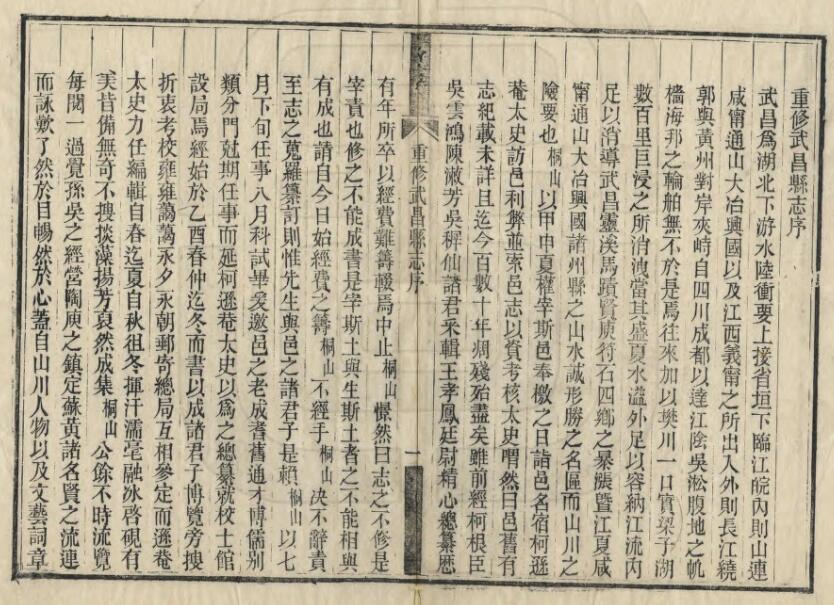 重修武昌縣志序
武昌爲湖北下游水陸衝要上接省垣下臨江皖內則山連
咸甯通山大冶興國以及江西義甯之所出入外則長江繞
郭與黃州對岸夾峙自四川成都以達江陰吳淞腹地之帆
檣海邦之輪舶無不於是焉往來加以樊川一口實梁子湖
數百里巨浸之所消洩當其盛夏水溢外足以容納江流內
足以消導武昌靈溪馬蹟賢庾符石四鄉之暴漲暨江夏咸
甯通山大冶興國諸州縣之山水誠形勝之名區而山川之
險要也桐山以甲申夏權宰斯邑奉檄之日詣邑名宿柯遜
菴太史訪邑利弊並索邑志以資考核太史喟然曰邑舊有
志紀載未詳且迄今百數十年凋殘始盡矣雖前經柯根臣
吳雲鴻陳漱芳吳稺仙諸君采輯王孝鳳廷尉精心總纂歷
重修武昌縣志序
一
有年所卒以經費難籌輟焉中止桐山憬然曰志之不修是
宰責也修之不能成書是宰斯土與生斯土者之不能相與
有成也請自今日始經費之籌桐山不經手桐山決不辭責
至志之蒐羅纂訂則惟先生與邑之諸君子是賴桐山以七
月下旬任事八月科試畢爰邀邑之老成耆舊通才博儒別
類分門尅期任事而延柯遜菴太史以爲之總纂就校士館
設局焉經始於乙酉春仲迄冬而書以成諸君子博覽旁搜
折衷考校雍雍藹藹永夕永朝郵寄總局互相參定而遜菴
太史力任編輯自春迄夏自秋徂冬揮汗濡毫融冰啓硯有
美皆備無奇不搜掞藻揚芳裒然成集桐山公餘不時流覽
每閱一過覺孫吳之經營陶庾之鎮定蘇黃諸名賢之流連
而詠歎了然於目暢然於心蓋自山川人物以及文藝詞章